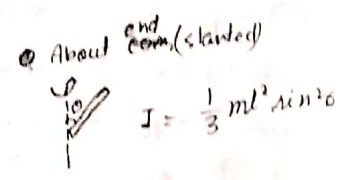 About end com, (slanted)
θ
I = 1/3 ml² sin²θ